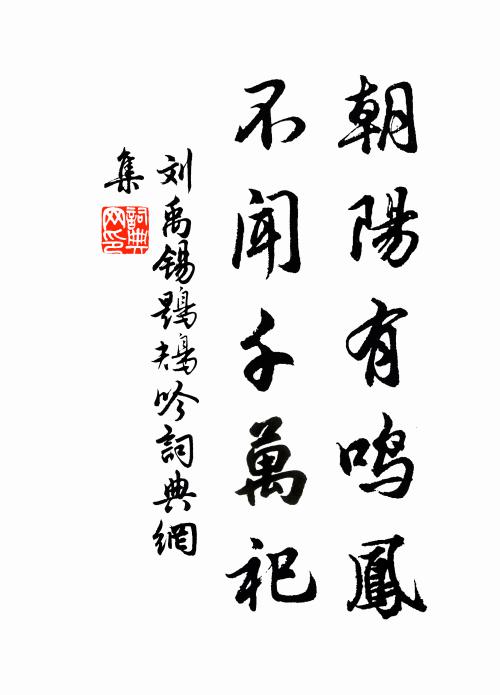 朝陽有鸣鳳
不聞千萬祀
刘禹锡鶗鴂吟詞典網
集
詞典
网印